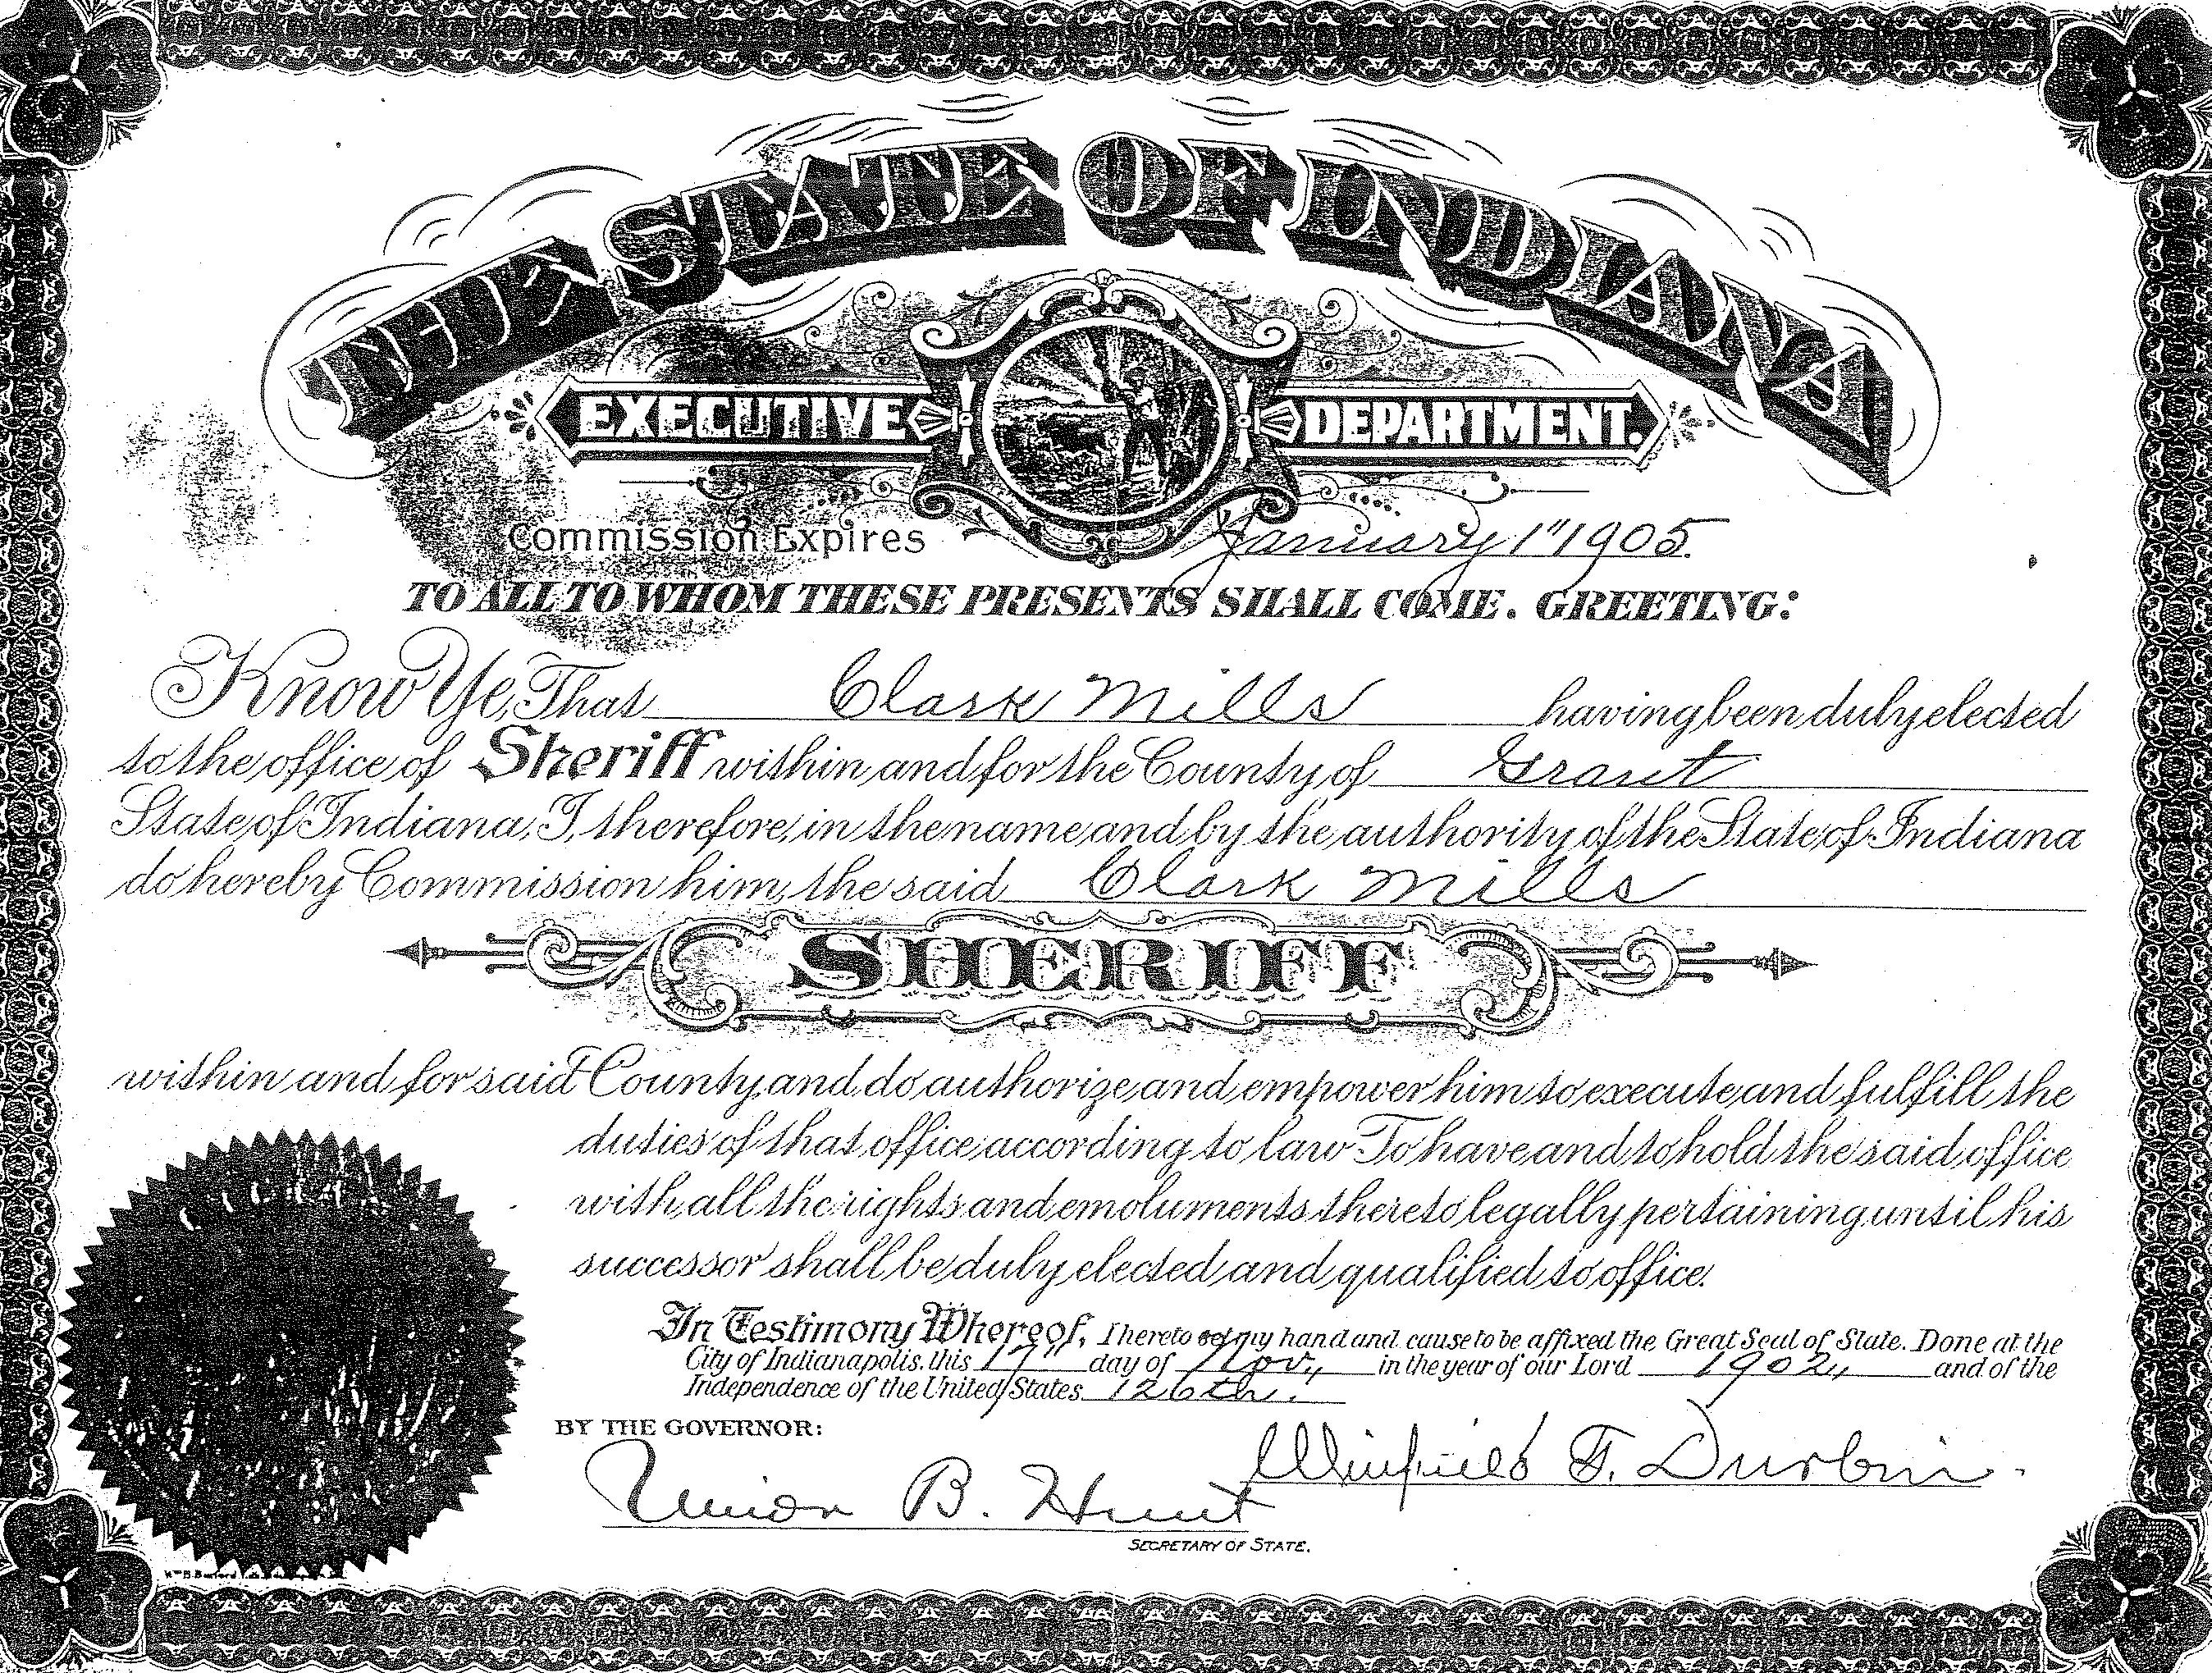 THE STATE OF INDIANA
EXECUTIVE DEPARTMENT.
Commission Expires January 1" 1905.
TO ALL TO WHOM THESE PRESENTS SHALL COME. GREETING:
Know Ye, That Clark Mills having been duly elected
to the office of Sheriff within and for the County of Grant
State of Indiana, I, therefore, in the name and by the authority of the State of Indiana
do hereby Commission him, the said Clark Mills
SHERIFF
within and for said County, and do authorize and empower him to execute and fulfill the
duties of that office according to law To have and to hold the said office
with all the rights and emoluments thereto legally pertaining until his
successor shall be duly elected and qualified to office.
In Testimony Whereof, I hereto set my hand and cause to be affixed the Great Seal of State. Done at the
City of Indianapolis. this 17" day of Nov., in the year of our Lord 1902, and of the
Independence of the United States 126th.
BY THE GOVERNOR:
Winfield T. Durbin.
Union B. Hunt
SECRETARY OF STATE.